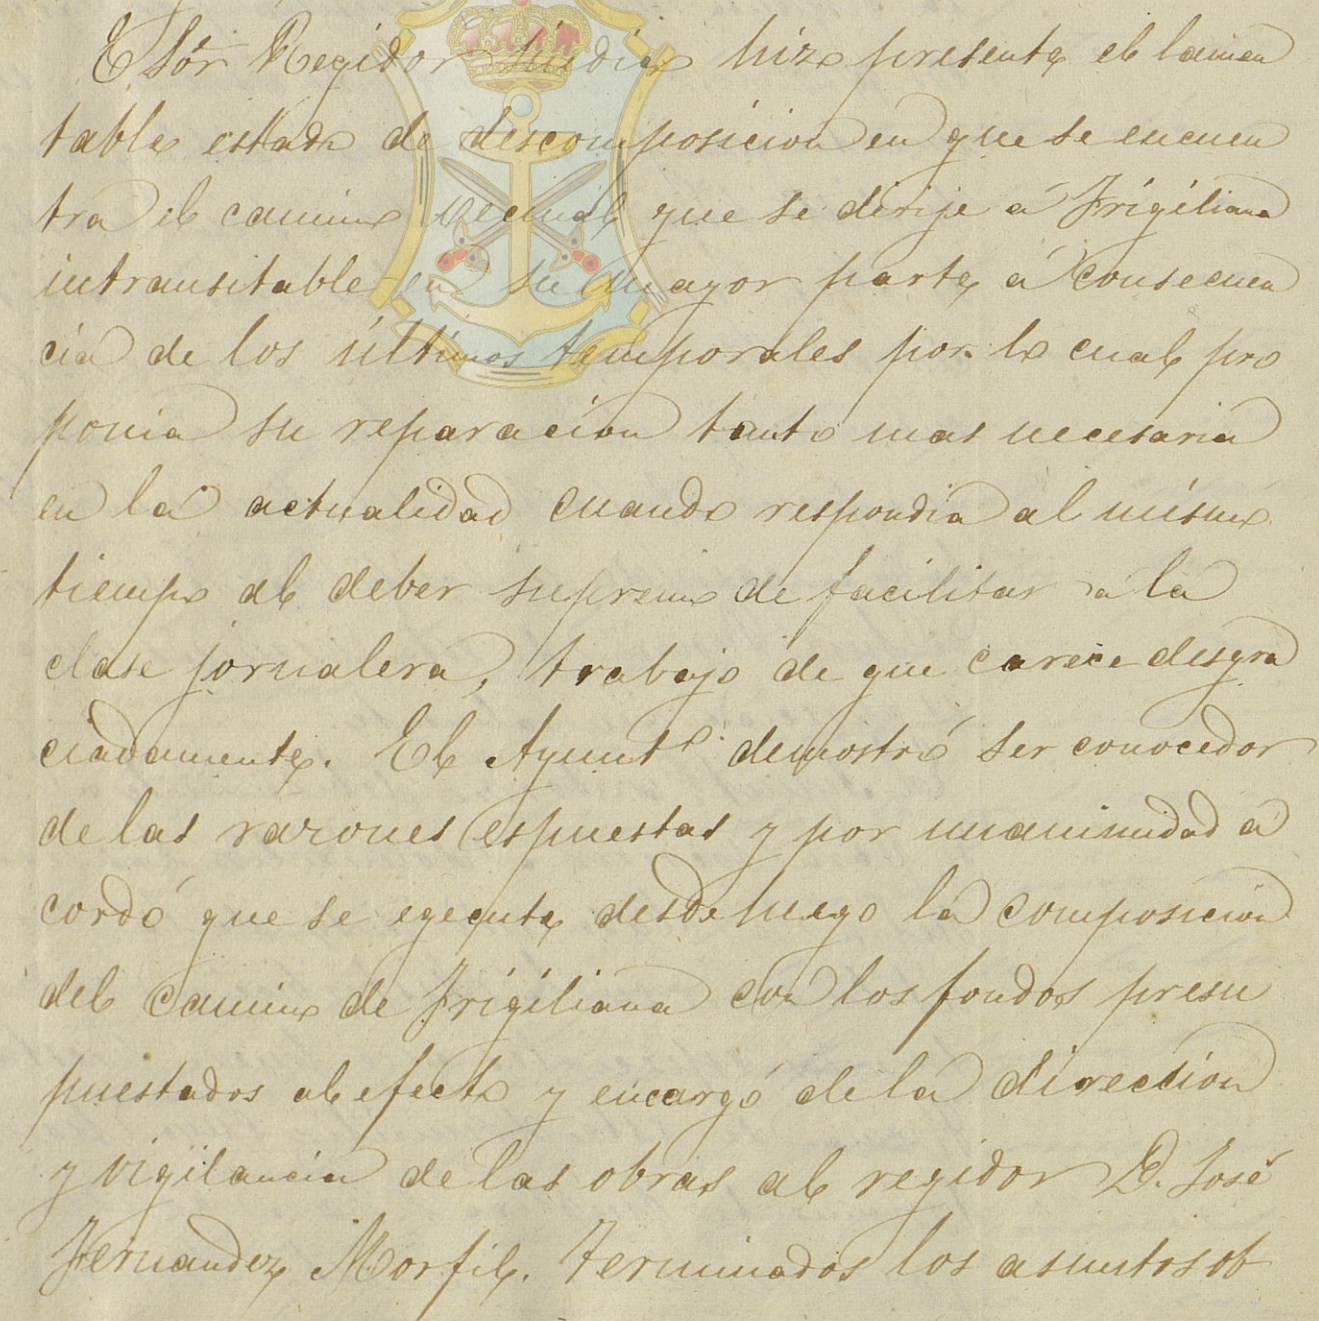 El Sór Regidor Síndico hizo presente el lamen
table estado de descomposicion en que se encuen
tra el camino vecinal que se dirije á Frigiliana
intransitable en su mayor parte á consecuen
cia de los últimos temporales por lo cual pro
ponia su reparacion tanto mas necesaria
en la actualidad cuando respondia al mismo
tiempo al deber supremo de facilitar á la
clase jornalera, trabajo de que carece desgra
ciadamente. El Ayuntº. demostró ser conocedor
de las razones espuestas y por unanimidad a
cordó que se egecute desde luego la composicion
del camino de Frigiliana con los fondos presu
puestados al efecto y encargó de la direccion
y vigilancia de las obras al regidor D. José
Fernandez Morfil. Terminados los asuntos ob